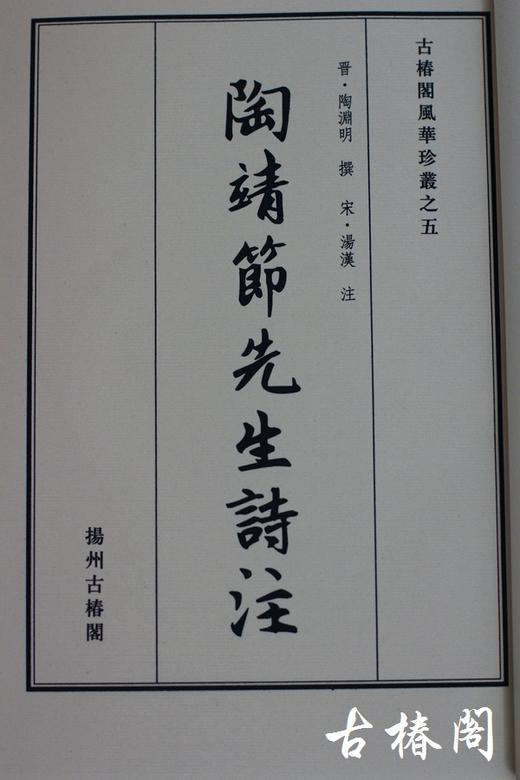 古椿閣風華珍叢之五
晋·陶淵明 撰 宋·湯漢 注
陶靖節先生詩注
揚州古椿閣
古椿阁